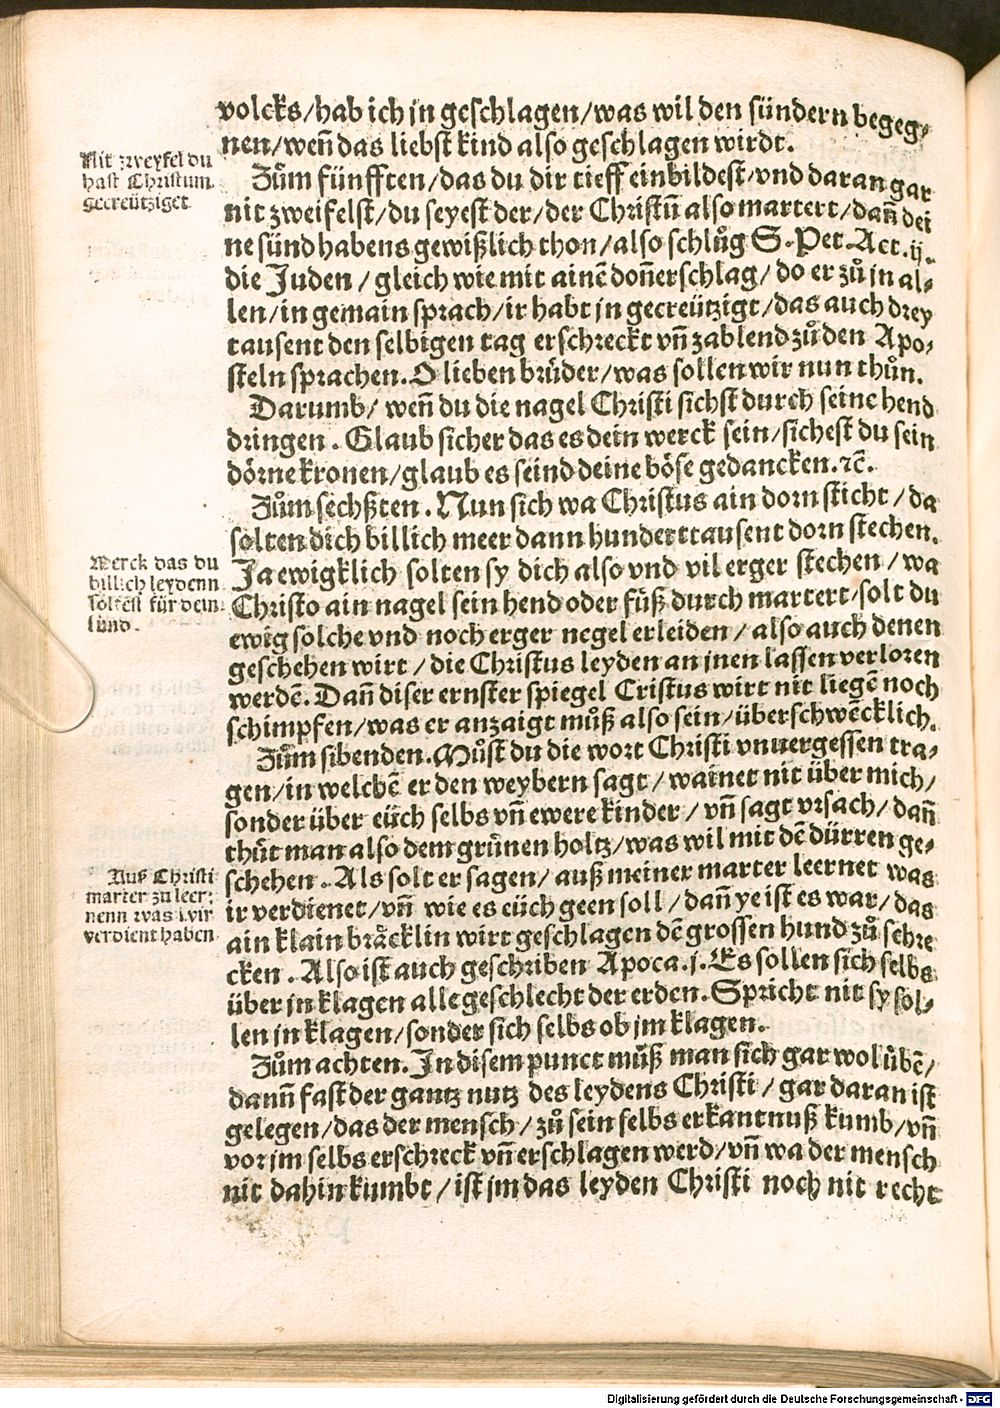 volcks/hab ich jn geschlagen/was wil den sündern begeg⸗
nen/weñ das liebst kind also geschlagen wirdt.
Nit zweyfel du
hast Christum
gecreütziget
Zům fünfften/das du dir tieff einbildest/vnd daran gar
nit zweifelst/du seyest der/der Christũ also martert/dañ dei
ne sünd habens gewißlich thon/also schlůg S. Pet. Act. ij.
die Juden/gleich wie mit ainẽ doñerschlag/do er zů jn al⸗
len/in gemain sprach/ir habt jn gecreützigt/das auch drey
tausent den selbigen tag erschreckt vñ zablend zů den Apo⸗
steln sprachen. O lieben brüder/was sollen wir nun thůn.
Darumb/weñ du die nagel Christi sichst durch seine hend
dringen. Glaub sicher das es dein werck sein/sichest du sein
dörne kronen/glaub es seind deine böse gedancken. ꝛc̃.
Zům sechßten. Nun sich wa Christus ain dorn sticht/da
solten dich billich meer dann hundert tausent dorn stechen.
Merck das du
billich leydenn
soltest für dein
sünd.
Ja ewigklich solten sy dich also vnd vil erger stechen/wa
Christo ain nagel sein hend oder füß durch martert/solt du
ewig solche vnd noch erger negel erleiden/also auch denen
geschehen wirt/die Christus leyden an jnen lassen verloren
werdẽ. Dañ diser ernster spiegel Cristus wirt nit liegẽ noch
schimpfen/was er anzaigt můß also sein/überschwẽcklich.
Zům sibenden. Můst du die wort Christi vnuergessen tra⸗
gen/in welchẽ er den weybern sagt/wainet nit über mich/
sonder über eüch selbs vñ ewere kinder/vñ sagt vrsach/dañ
thůt man also dem grůnen holtz/was wil mit dẽ dürren ge⸗
schehen. Als solt er sagen/auß meiner marter leernet was
Auß Christi
marter zu leer⸗
nenn was wir
verdient haben
ir verdienet/vñ wie es eüch geen soll/dañ ye ist es war/das
ain klain bräcklin wirt geschlagen dẽ grossen hund zů schre
cken. Also ist auch geschriben Apoca. j. Es sollen sich selbs
über jn klagen alle geschlecht der erden. Spricht nit sy sol⸗
len jn klagen/sonder sich selbs ob jm klagen.
Zům achten. In disem punct můß man sich gar wol übẽ/
dann fast der gantz nutz des leydens Christi/gar daran ist
gelegen/das der mensch/zů sein selbs erkantnuß kumb/vñ
vor jm selbs erschreck vñ erschlagen werd/vñ wa der mensch
nit dahin kumbt/ist jm das leyden Christi noch nit recht
Digitalisierung gefördert durch die Deutsche Forschungsgemeinschaft - DFG